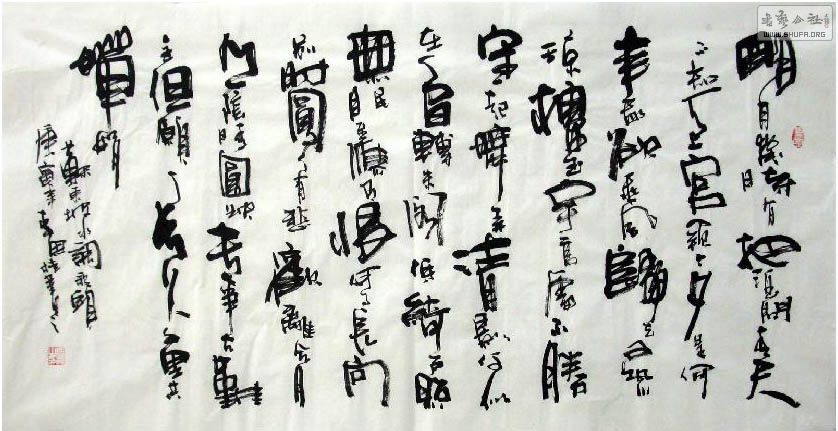 书艺公社
WWW.SHUFA.ORG
明月幾時有把酒問青天
不知天上宮闕今夕是何
年我欲乘風歸去又恐
瓊樓玉宇高處不勝
寒起舞弄清影何似
在人間轉朱閣低綺戶照
無眠不應有恨何事長向
別時圓人有悲歡離合月
有陰晴圓缺此事古難
全但願人長久千里共
嬋娟
蘇東坡水調歌頭
庚寅年